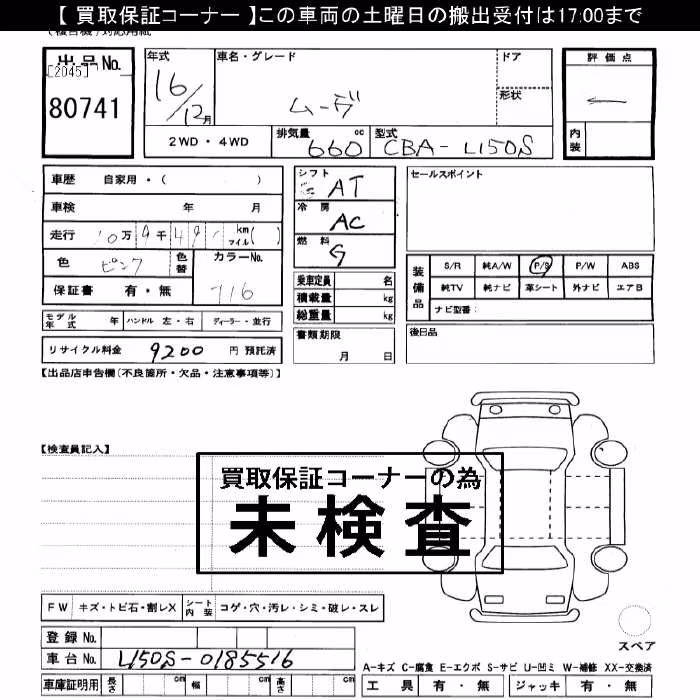 【 買取保証コーナー 】この車両の土曜日の搬出受付は17:00まで
出品No.
[2045]
80741
年式
16/12月
2WD・4WD
車名・グレード
ムーヴ
ドア
形状
排気量 660 cc
型式 CBA-L150S
評価点
内装
車歴 自家用・( )
車検 年 月
走行 10万 9千 4 9 1 km マイル( )
色 ピンク
色替
カラーNo.
716
保証書 有・無
モデル年式 年 ハンドル 左・右 ディーラー・並行
リサイクル料金 9200 円 預託済
シフト AT
冷房 AC
燃料 G
乗車定員 名
積載量 kg
総重量 kg
書類期限
月 日
セールスポイント
装備品
S/R 純A/W P/S P/W ABS
純TV 純ナビ 革シート 外ナビ エアB
ナビ型番:
後日品
【出品店申告欄(不良箇所・欠品・注意事項等)】
【検査員記入】
買取保証コーナーの為
未検査
FW キズ・トビ石・割レX シート内装 コゲ・穴・汚レ・シミ・破レ・スレ
登録No.
車台No. L150S-0185516
車庫証明用 長さ cm 幅 cm 高さ cm
スペア
A-キズ C-腐食 E-エクボ S-サビ U-凹ミ W-補修 XX-交換済
工具 有・無 ジャッキ 有・無